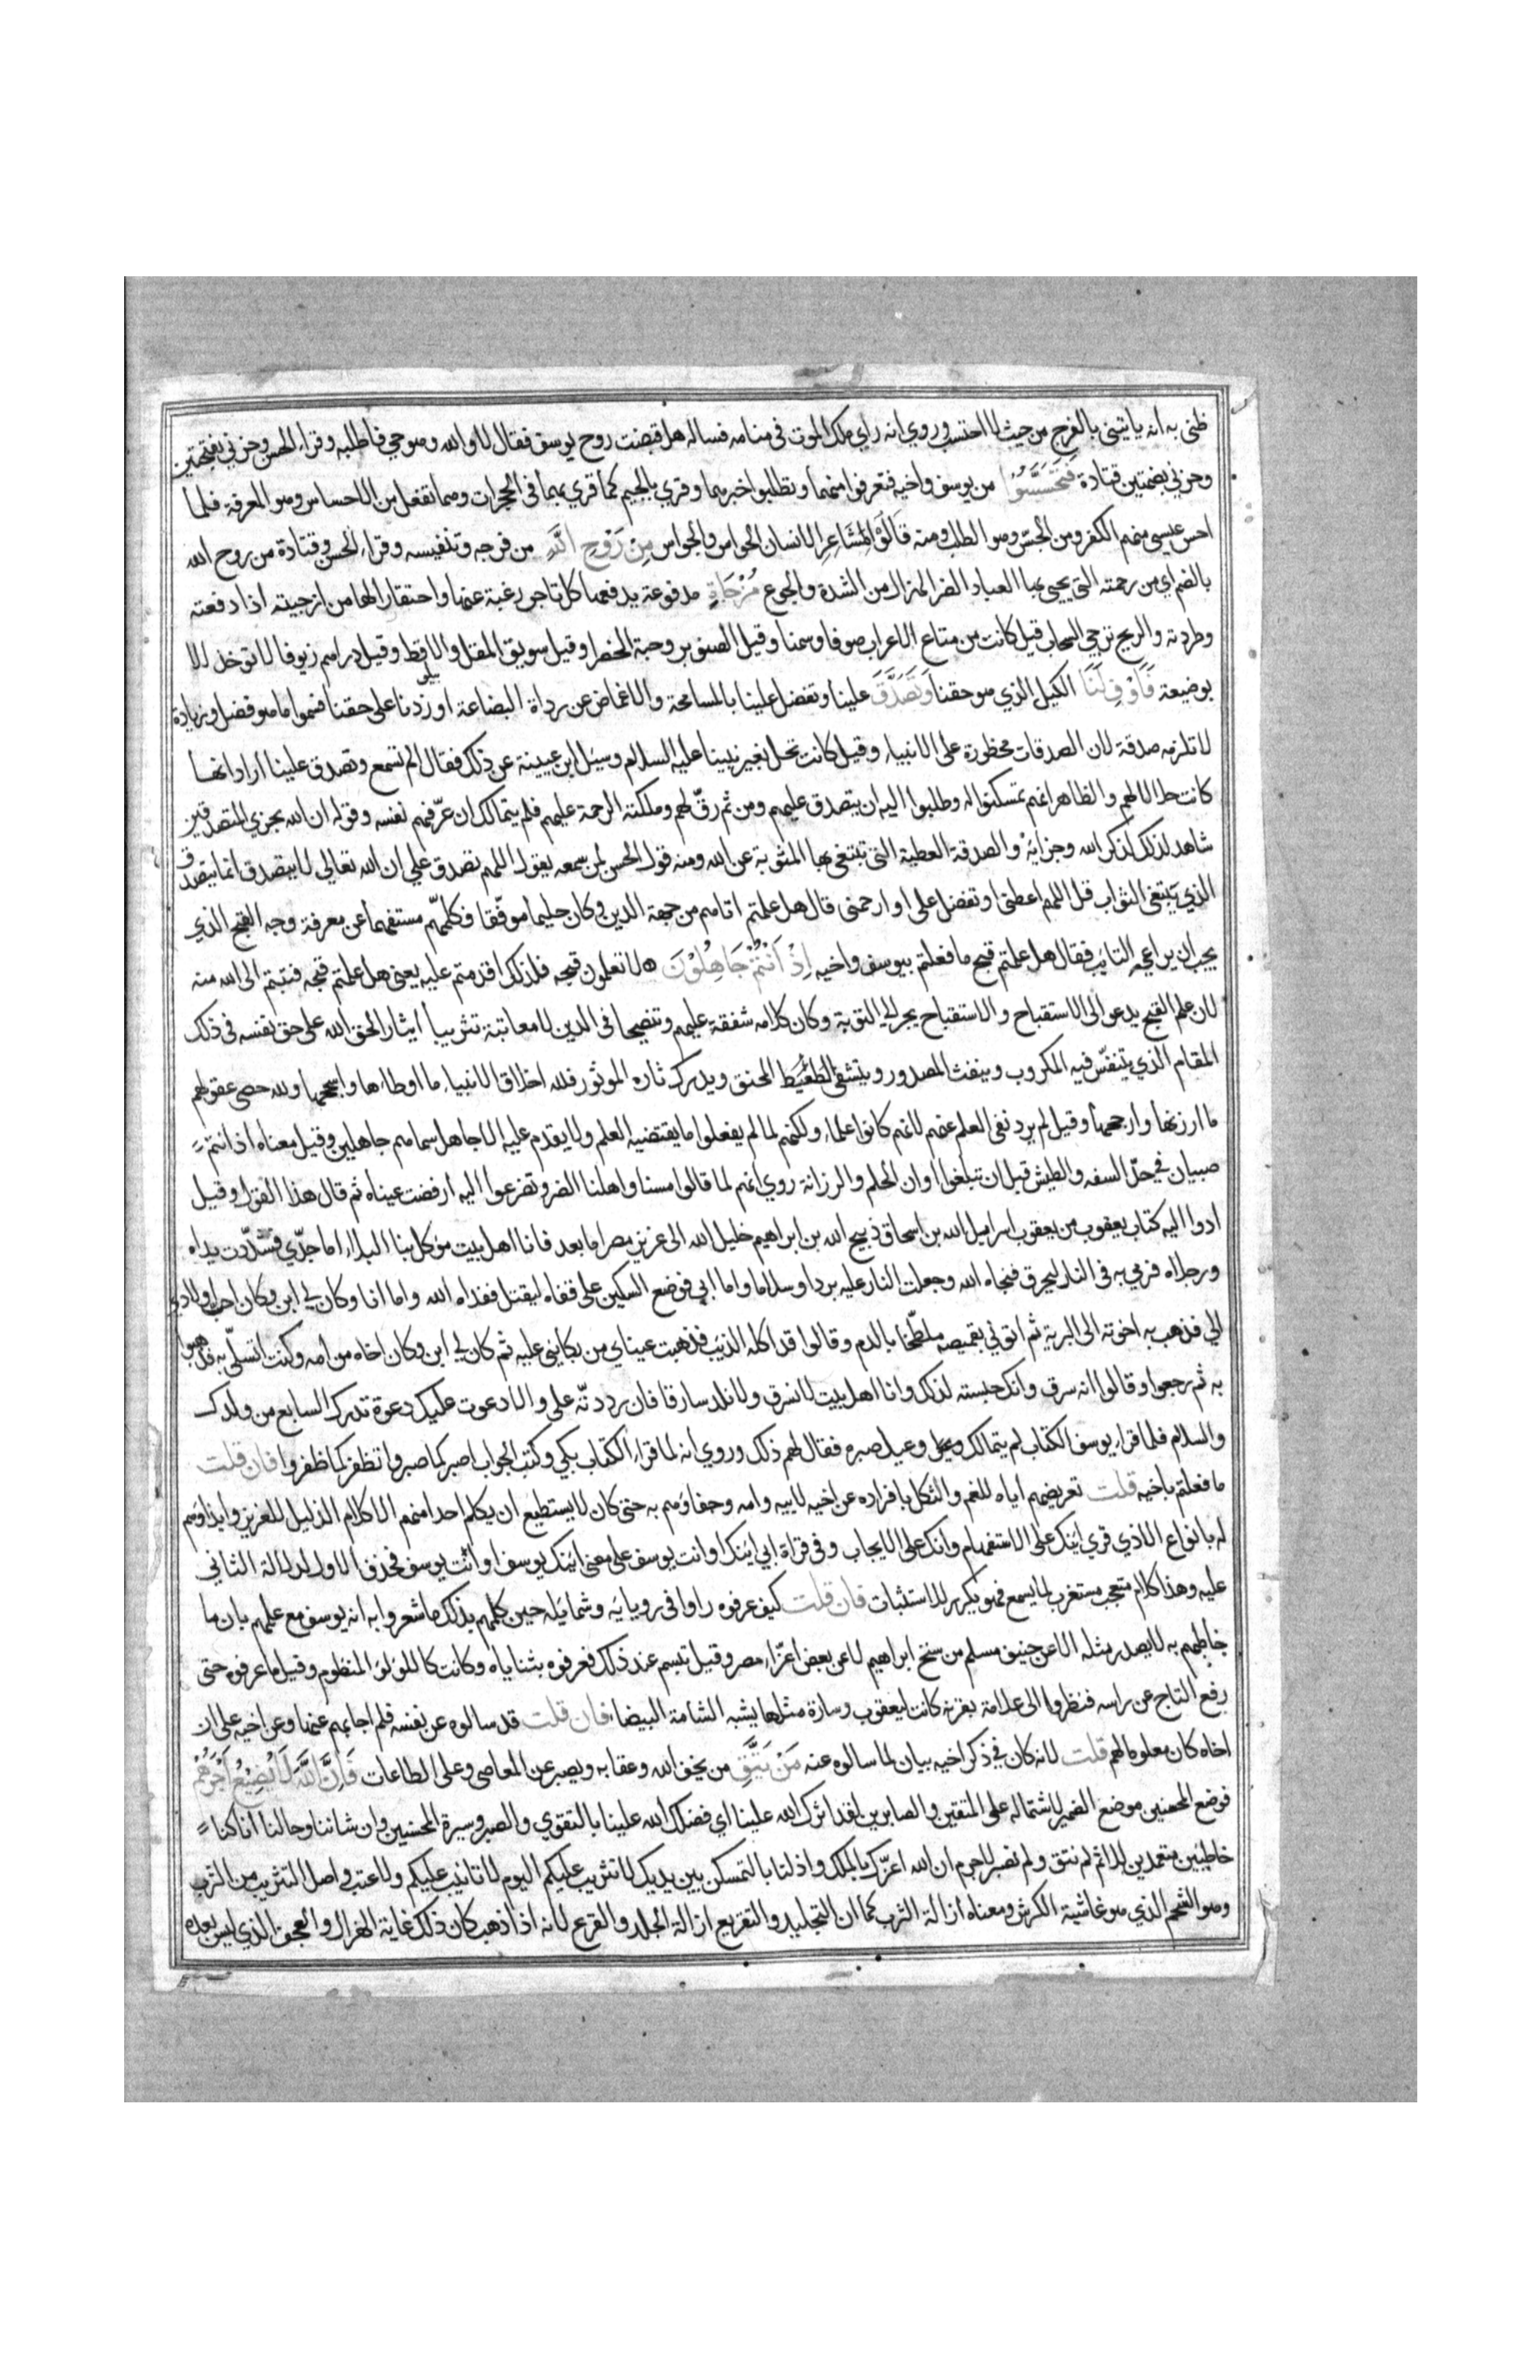 ظني به انه ياتيني بالفرج من حيث لا احتسب وروي انه راي ملك الموت في منامه فساله هل قبضت روح يوسف فقال لا والله وهو حي فاطلبه وقراء الحسن وحزني بفتحتين
وحزني بضمتين قتادة فَتَحَسَّسُوْا من يوسف واخيه فتعرفوا منهما وتطلبوا خبرهما وقري بالجيم كما قري بهما في الحجرات وهما تفعل من الاحساس وهو المعرفة فلما
احس عيسي منهم الكفر ومن الجس وهو الطلب ومنه قالوا لمشاعر الانسان الحواس والجواس مِنْ رَوْحِ اللّٰهِ من فرجه وتنفيسه وقراء الحسن وقتادة من روح الله
بالضم اي من رحمته التي يحيي بها العباد الضر الهزال من الشدة والجوع مُزْجَاةٍ مدفوعة يدفعها كل تاجر رغبة عنها واحتقارا لها من ازجيته اذا دفعته
وطردته والريح تزجي السحاب قيل كانت من متاع الاعراب صوفا وسمنا وقيل الصنوبر وحبة الخضرا وقيل سويق المقل والاقط وقيل دراهم زيوفا لا توخل الا
بوضيعة فَاَوْفِ لَنَا الكيل الذي هو حقنا وَتَصَدَّقَ علينا وتفضل علينا بالمسامحة والاغماض عن رداة البضاعة او زدنا علي حقنا فسموا ما هو فضل وزيادة
لا تلزمه صدقة لان الصدقات محظورة علي الانبياء وقيل كانت تحل لغير نبينا عليه السلام وسئل ابن عيينة عن ذلك فقال الم تسمع وتصدق علينا اراد انها
كانت حلالا لهم والظاهر انهم تمسكنوا له وطلبوا اليه ان يتصدق عليهم ومن ثم رقّ لهم وملكته الرحمة عليهم فلم يتمالك ان عرّفهم نفسه وقوله ان الله يجزي المتصدقين
شاهد لذلك لذكر الله وجزائه والصدقة العطية التي تبتغي بها المثوبة عن الله ومنه قول الحسن لمن سمعه يقول اللهم تصدق علي ان الله تعالي لا يتصدق انما يتصدق
الذي يبتغي الثواب قل اللهم اعطني او تفضل علي او ارحمني قال هل علمتم اتاهم من جهة الدين وكان حليما موفّقا فكلمهم مستفهما عن معرفة وجه القبح الذي
يجب ان يراعيه التائب فقال هل علمتم قبح ما فعلتم بيوسف واخيه اِذْ اَنْتُمْ جَاهِلُوْنَ لا تعلمون قبحه فلذلك اقدمتم عليه يعني هل علمتم قبحه فتبتم الي الله منه
لان علم القبح يدعو الي الاستقباح والاستقباح يجر الي التوبة وكان كلامه شفقة عليهم وتنصحا في الدين لا معاتبة تثريبا ايثارا لحق الله علي حق نفسه في ذلك
المقام الذي يتنفّس فيه المكروب وينفث المصدور ويتشفي المغيظ المحنق ويدرك ثاره الموثور فلله اخلاق الانبياء ما اوطاها واسجحها ولله حصي عقولهم
ما ارزنها وارجحها وقيل لم يرد نفي العلم عنهم لانهم كانوا علماء ولكنهم لما لم يفعلوا ما يقتضيه العلم ولا يقدم عليه الا جاهل سماهم جاهلين وقيل معناه اذ انتم
صبيان في حدّ السفه والطيش قبل ان تبلغوا اوان الحلم والرزانة روي انهم لما قالوا مسنا واهلنا الضر وتضرعوا اليه ارفضت عيناه ثم قال هذا القول وقيل
ادوا اليه كتاب يعقوب من يعقوب اسراييل الله بن اسحاق ذبيح الله بن ابراهيم خليل الله الي عزيز مصر اما بعد فانا اهل بيت موكل بنا البلاء اما جدّي فشدّت يداه
ورجلاه فرمي به في النار ليحرق فنجاه الله وجعلت النار عليه بردا وسلاما واما ابي فوضع السكين علي قفاه ليقتل ففداه الله واما انا وكان لي ابن وكان احب اولادي
الي فذهب به اخوته الي البرية ثم اتوني بقميصه ملطّخا بالدم وقالوا قد اكله الذيب فذهبت عيناي من بكايني عليه ثم كان لي ابن وكان اخاه من امه وكنت اتسلّي به فذهبوا
به ثم رجعوا وقالوا انه سرق وانك حبسته لذلك وانا اهل بيت لا نسرق ولا نلد سارقا فان رددتّه علي والا دعوت عليك دعوة تدرك السابع من ولدك
والسلام فلما قراء يوسف الكتاب لم يتمالك وعيل صبره فقال لهم ذلك وروي انه لما قراء الكتاب بكي وكتب الجواب اصبر كما صبروا تظفر كما ظفروا فان قلت
ما فعلتم باخيه قلت تعريضهم اياه للغم والثكل بافراده عن اخيه لابيه وامه وجفاوهم به حتي كان لا يستطيع ان يكلم احدا منهم الا كلام الذليل للعزيز وايذاوهم
له بانواع الاذي قري ائنك علي الاستفهام وانك علي الايجاب وفي قراة ابي ائنك او انت يوسف علي معني ائنك يوسف او انت يوسف فحذف الاول لدلالة الثاني
عليه وهذا كلام متعجب مستغرب لما يسمع فهو يكرر للاستثبات فان قلت كيف عرفوه راوا في رويايه وشمايله حين كلمهم بذلك ما شعروا به انه يوسف مع علمهم بان ما
خاطبهم به لا يصدر مثله الا عن حنيف مسلم من سنخ ابراهيم لا عن بعض اعزّاء مصر وقيل تبسم عند ذلك فعرفوه بثناياه وكانت كاللولو المنظوم وقيل ما عرفوه حتي
رفع التاج عن راسه فنظروا الي علامة بقرنه كانت ليعقوب وسارة مثلها يشبه الشامة البيضاء فان قلت قد سالوه عن نفسه فلم اجابهم عنها وعن اخيه علي ان
اخاه كان معلوما لهم قلت لانه كان في ذكر اخيه بيان لما سالوه عنه مَنْ يَتَّقِ من يخف الله وعقابه ويصبر عن المعاصي وعلي الطاعات فَاِنَّ اللّٰهَ لَا يُضِيْعُ اَجْرَهُمْ
فوضع المحسنين موضع الضمير لاشتماله علي المتقين والصابرين لقد اثرك الله علينا اي فضلك الله علينا بالتقوي والصبر وسيرة المحسنين وان شاننا وحالنا انا كنا
خاطئين متعمدين للاثم لم نتق ولم نصبر لا جرم ان الله اعزّك بالملك واذلنا بالتمسكن بين يديك لا تثريب عليكم اليوم لا تانيب عليكم ولا عتب واصل التثريب من الثرب
وهو الشحم الذي هو غاشية الكرش ومعناه ازالة الثرب كما ان التجليد والتقريع ازالة الجلد والقرع لانه اذا ذهب كان ذلك غاية الهزال والعجف الذي ليس بعده